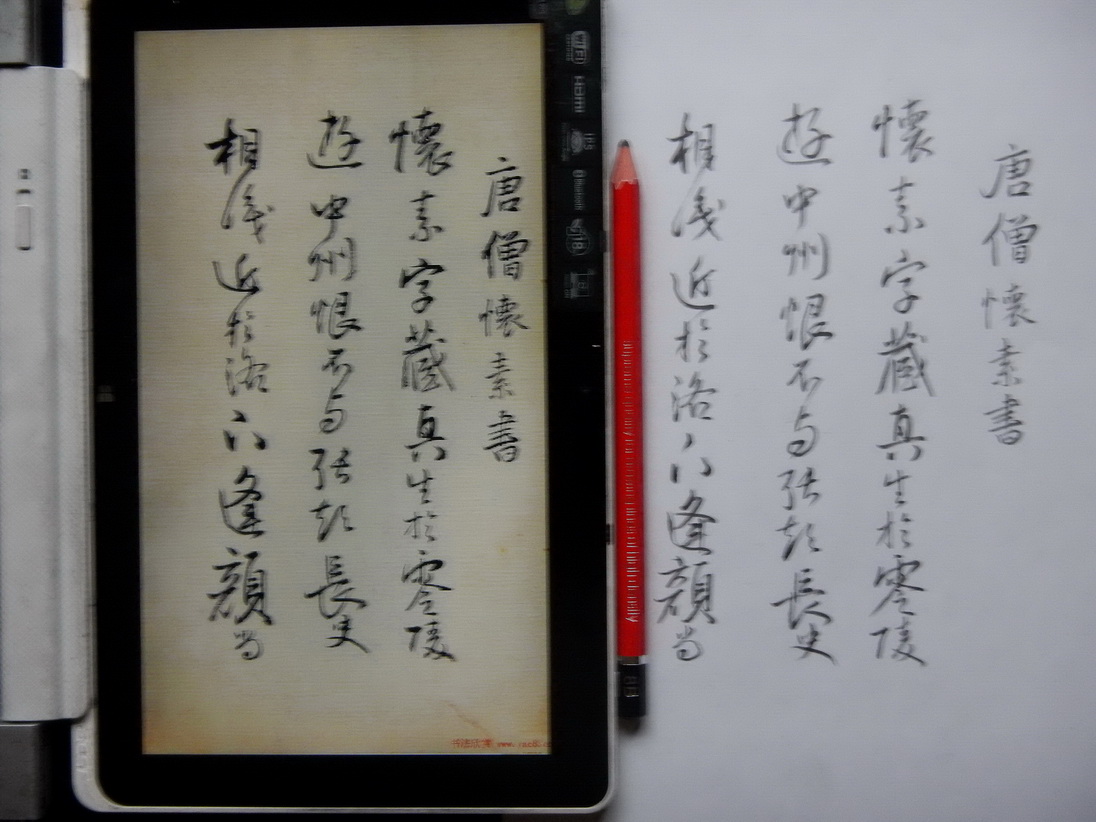 唐僧懷素書
懷素字藏真生於零陵
遊中州恨不与張顛長史
相識近於洛下逢顏尚
HDMI
GPS
Bluetooth
唐僧懷素書
懷素字藏真生於零陵
遊中州恨不与張顛長史
相識近於洛下逢顏尚